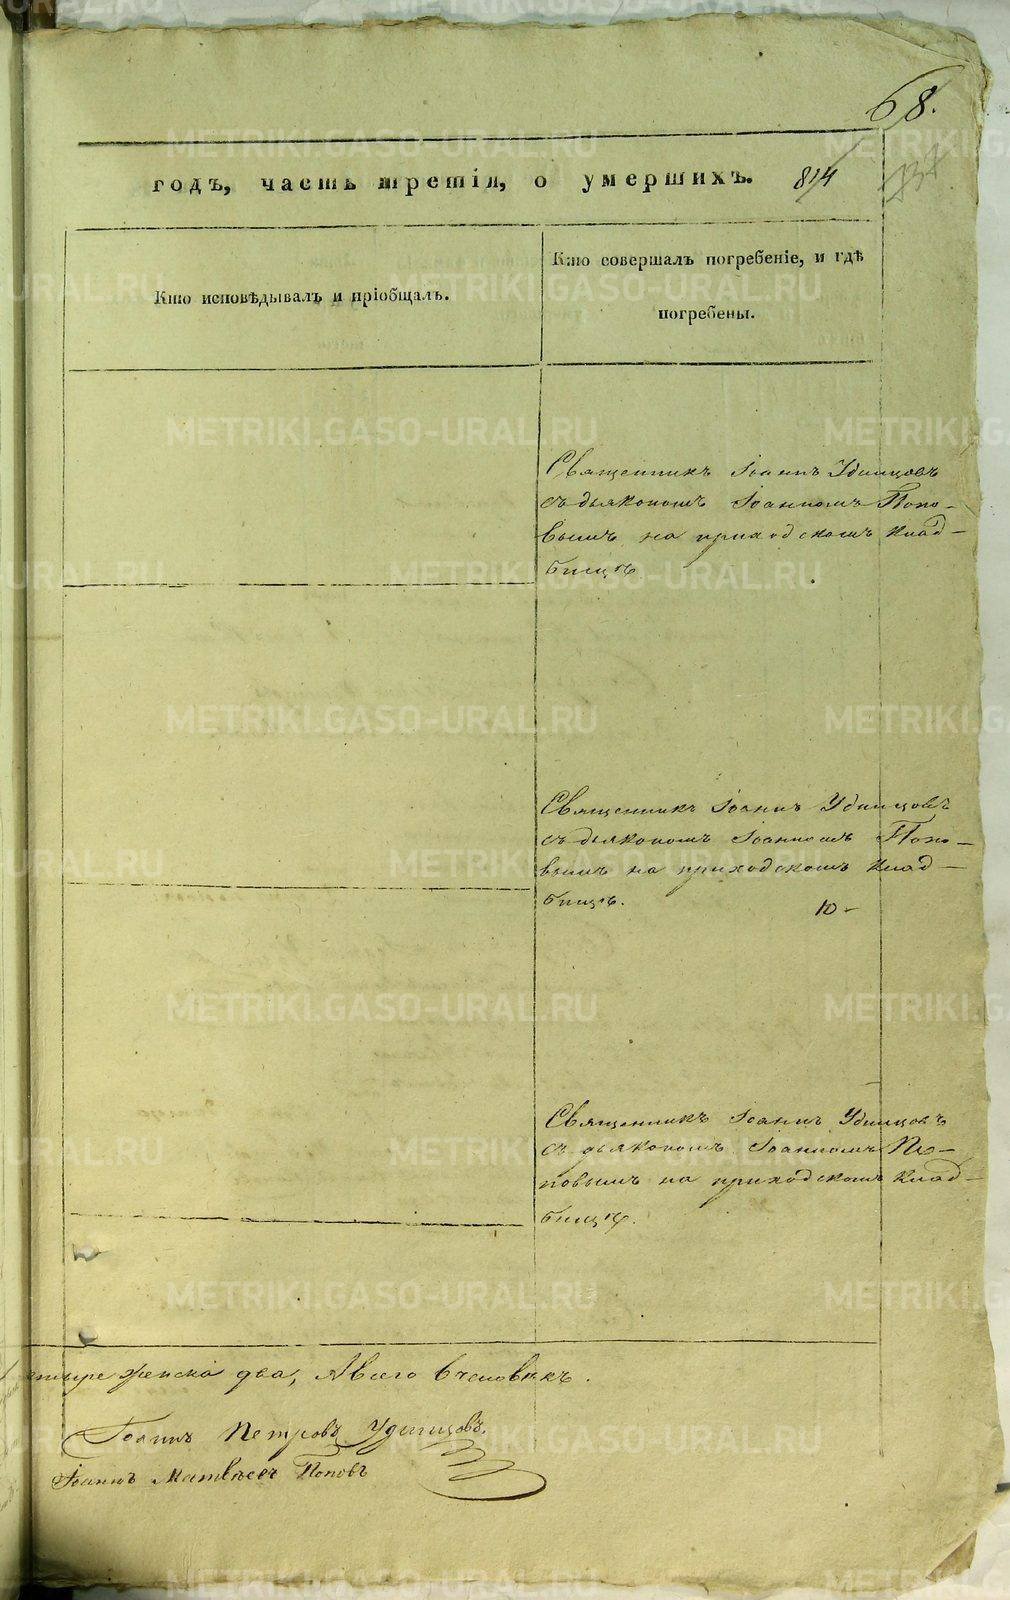 68.
годъ, часть третія, о умершихъ. 814
Кто исповѣдывалъ и пріобщалъ.
Кто совершалъ погребеніе, и гдѣ
погребены.
Священникъ Іоаннъ Удинцовъ
съ дьякономъ Іоанномъ Попо-
вымъ на приходскомъ клад-
бищѣ
Священникъ Іоаннъ Удинцовъ
съ дьякономъ Іоанномъ Попо-
вымъ на приходскомъ клад-
бищѣ.
10-
Священникъ Іоаннъ Удинцовъ
съ дьякономъ Іоанномъ По-
повымъ на приходскомъ клад-
бищѣ.
етыре женска два, Авсего 6 человѣкъ.
Іоаннъ Петровъ Удинцовъ.
Іоаннъ Матвѣевъ Поповъ
METRIKI.GASO-URAL.RU